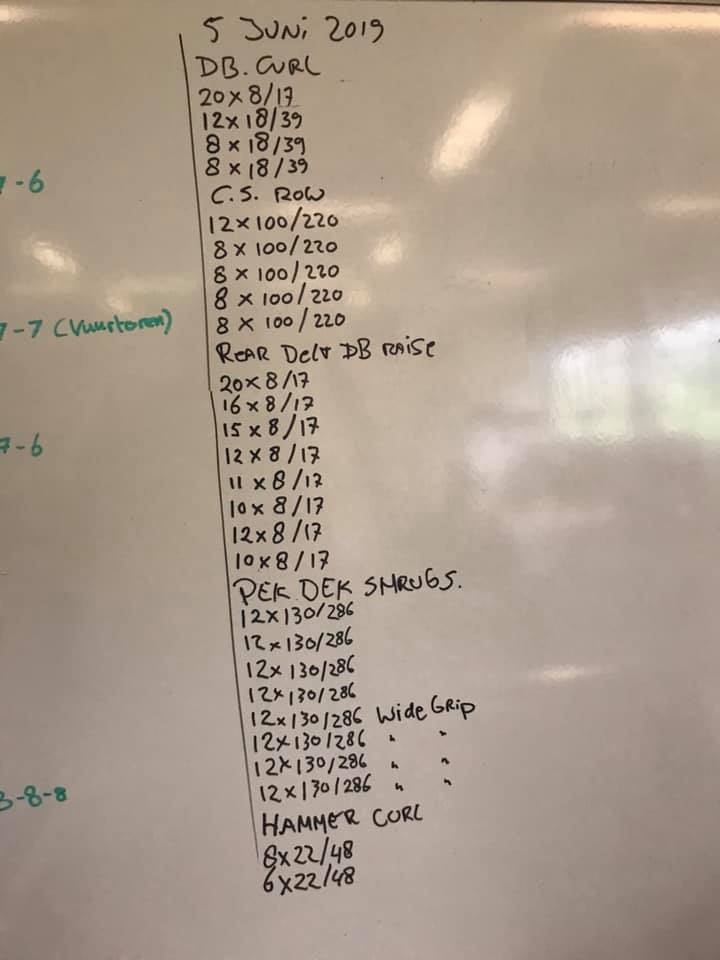 5 JUNI 2019
DB. CURL
20 x 8/17
12 x 18/39
8 x 18/39
8 x 18/39
C.S. ROW
12 x 100/220
8 x 100/220
8 x 100/220
8 x 100/220
8 x 100/220
REAR Delt DB RAISE
20 x 8/17
16 x 8/17
15 x 8/17
12 x 8/17
11 x 8/17
10 x 8/17
12 x 8/17
10 x 8/17
PEK DEK SHRUGS.
12 x 130/286
12 x 130/286
12 x 130/286
12 x 130/286
12 x 130/286 Wide Grip
12 x 130/286 " "
12 x 130/286 " "
12 x 130/286 " "
HAMMER CURL
8 x 22/48
6 x 22/48
7-6
7-7 (Vuurtoren)
7-6
8-8